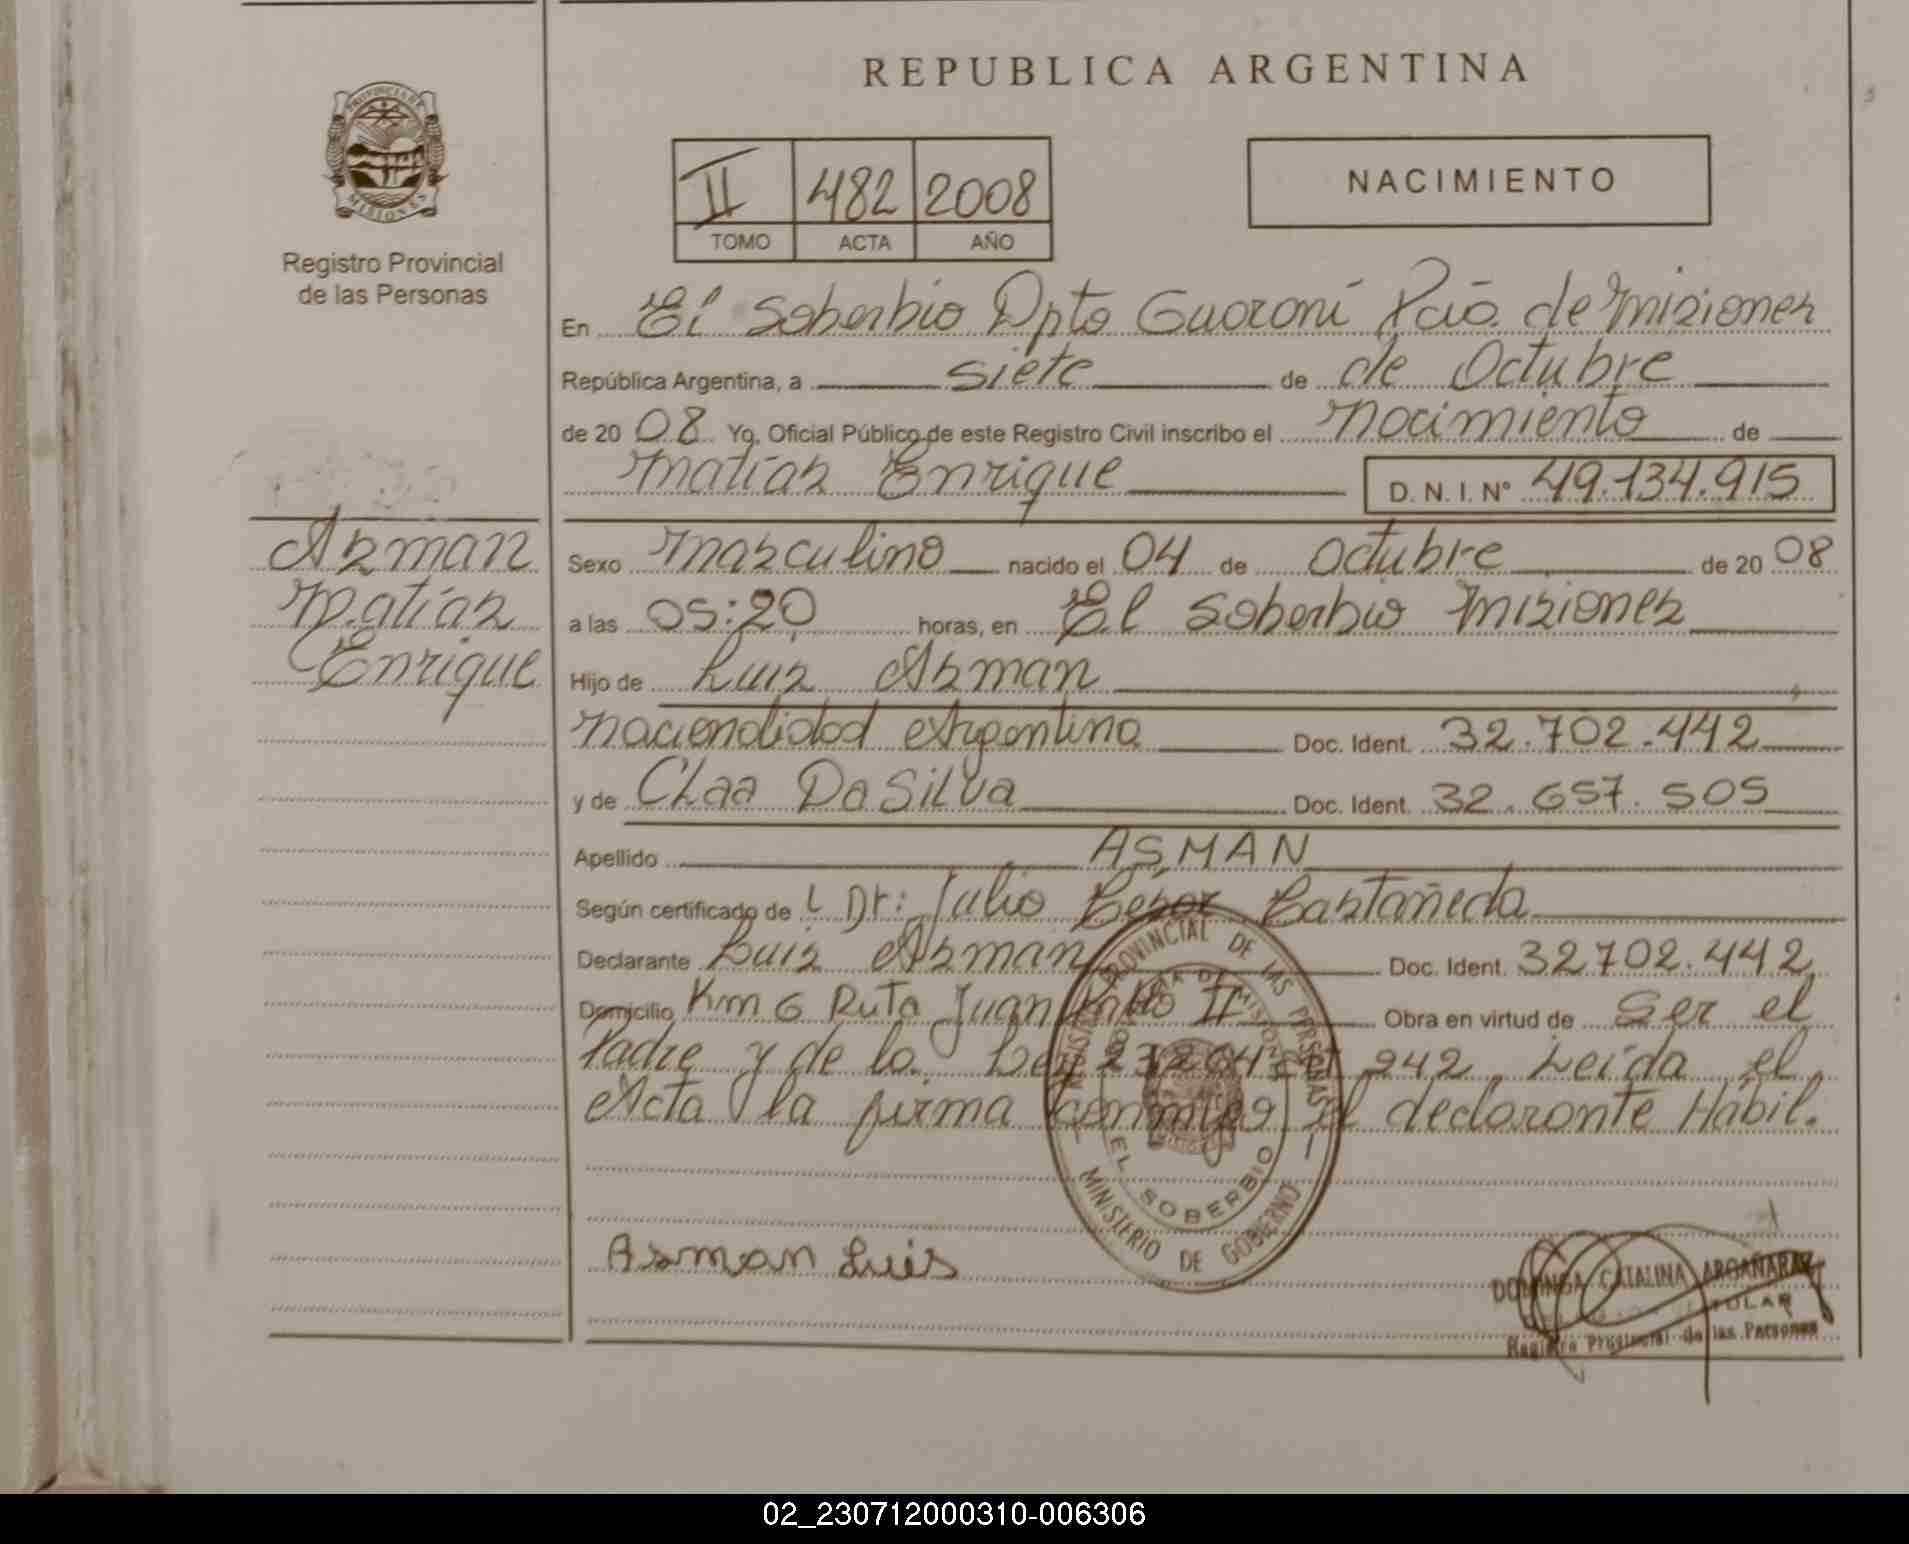 REPUBLICA ARGENTINA
PROVINCIA DE
MISIONES
Registro Provincial
de las Personas
II 482 2008
TOMO ACTA AÑO
NACIMIENTO
En El Soberbio Dpto Guaraní Pcia. de Misiones
República Argentina, a siete de de Octubre
de 20 08 Yo, Oficial Público de este Registro Civil inscribo el Nacimiento de
Matías Enrique D. N. I. Nº 49.134.915
Asman
Matías
Enrique
Sexo Masculino nacido el 04 de Octubre de 20 08
a las 05:20 horas, en El Soberbio Misiones
Hijo de Luis Asman
Nacionalidad Argentina Doc. Ident. 32.702.442
y de Da Silva Doc. Ident. 32.657.505
Apellido ASMAN
Según certificado de Dr: Julio César Castañeda
Declarante Luis Asman Doc. Ident. 32702.442
Domicilio Km 6 Ruta Juan Pablo II Obra en virtud de Ser el
Padre y de la Ley Leída el
Acta la firma conmigo el declarante Hábil.
PROVINCIAL DE LAS PERSONAS
EL SOBERBIO
MINISTERIO DE GOBIERNO
Asman Luis
CATALINA ARGAÑARAZ
TITULAR
Registro Provincial de las Personas
02_230712000310-006306